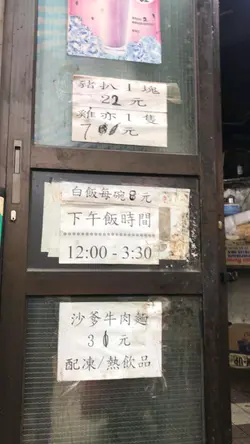 豬扒1塊
22元
雞亦1隻
白飯每碗8元
下午飯時間
12:00 - 3:30
沙爹牛肉麵
30元
配凍/熱飲品